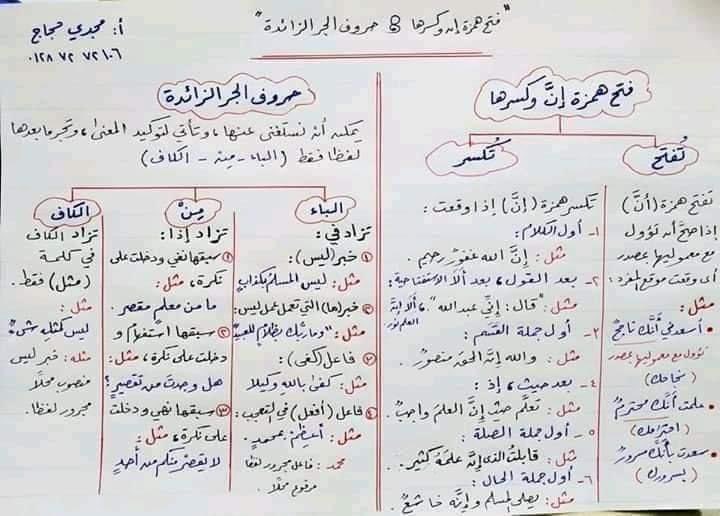 "فتح همزة إن وكسرها & حروف الجر الزائدة"
أ: مجدي حجاج
٠١٢٨ ٧٢ ٧٢ ١٠٦
فتح همزة إنَّ وكسرها
تُفتح
تفتح همزة (أنَّ)
إذا صحَّ أنه تؤول
مع معموليها بمصدر
أى وقعت موقع المفرد:
مثل:
• أسعدني أنَّك ناجحٌ
تؤول مع معموليها بمصدر
(نجاحك)
• علمت أنَّك محترمٌ
(احترامك)
• سعدت بأنَّك مسرورٌ
(بسرورك)
تُكسر
تكسر همزة (إنَّ) إذا وقعت:
١- أول الكلام:
مثل: إنَّ الله غفورٌ رحيم.
٢- بعد القول، بعد ألا الاستفتاحية:
مثل: "قال: إنِّي عبدالله"، ألا إنَّ
العلم نور
٣- أول جملة القسم:
مثل: والله إنَّ الحق منصورٌ.
٤- بعد حيث، إذ:
مثل: تعلَّم حيث إنَّ العلم واجبٌ.
٥- أول جملة الصلة:
مثل: قابلتُ الذى إنَّه علمَهُ كثير.
٦- أول جملة الحال:
مثل: يصلى المسلم وإنَّه خاشعٌ.
حروف الجر الزائدة
يمكن أن نستغنى عنها، وتأتي لتوكيد المعنى، وتجر ما بعدها
لفظا فقط (الباء - من - الكاف)
الباء
تزاد في:
١ خبر (ليس):
مثل: ليس المسلمُ بكذابٍ
٢ خبر (ما) التي تعمل عمل ليس:
مثل: "وما ربُّك بظلَّامٍ للعبيد"
٣ فاعل (كفى):
مثل: كفى بالله وكيلا
٤ فاعل (أفعل) في التعجب:
مثل: أعظِمْ بمحمدٍ.
محمد: فاعل مجرور لفظا
مرفوع محلًا.
مِنْ
تزاد إذا:
١ سبقها نفي ودخلت على
نكرة، مثل:
ما من معلم مقصر.
٢ سبقها استفهام و
دخلت على نكرة، مثل:
هل وجدت من تقصيرٍ؟
٣ سبقها نهي ودخلت
على نكرة، مثل:
لا يقصرْ منكم من أحدٍ
الكاف
تزاد الكاف
في كلمة
(مثل) فقط.
مثل:
ليس كمثلِه شيءٌ
مثله: خبر ليس
منصوب محلًا
مجرور لفظا.